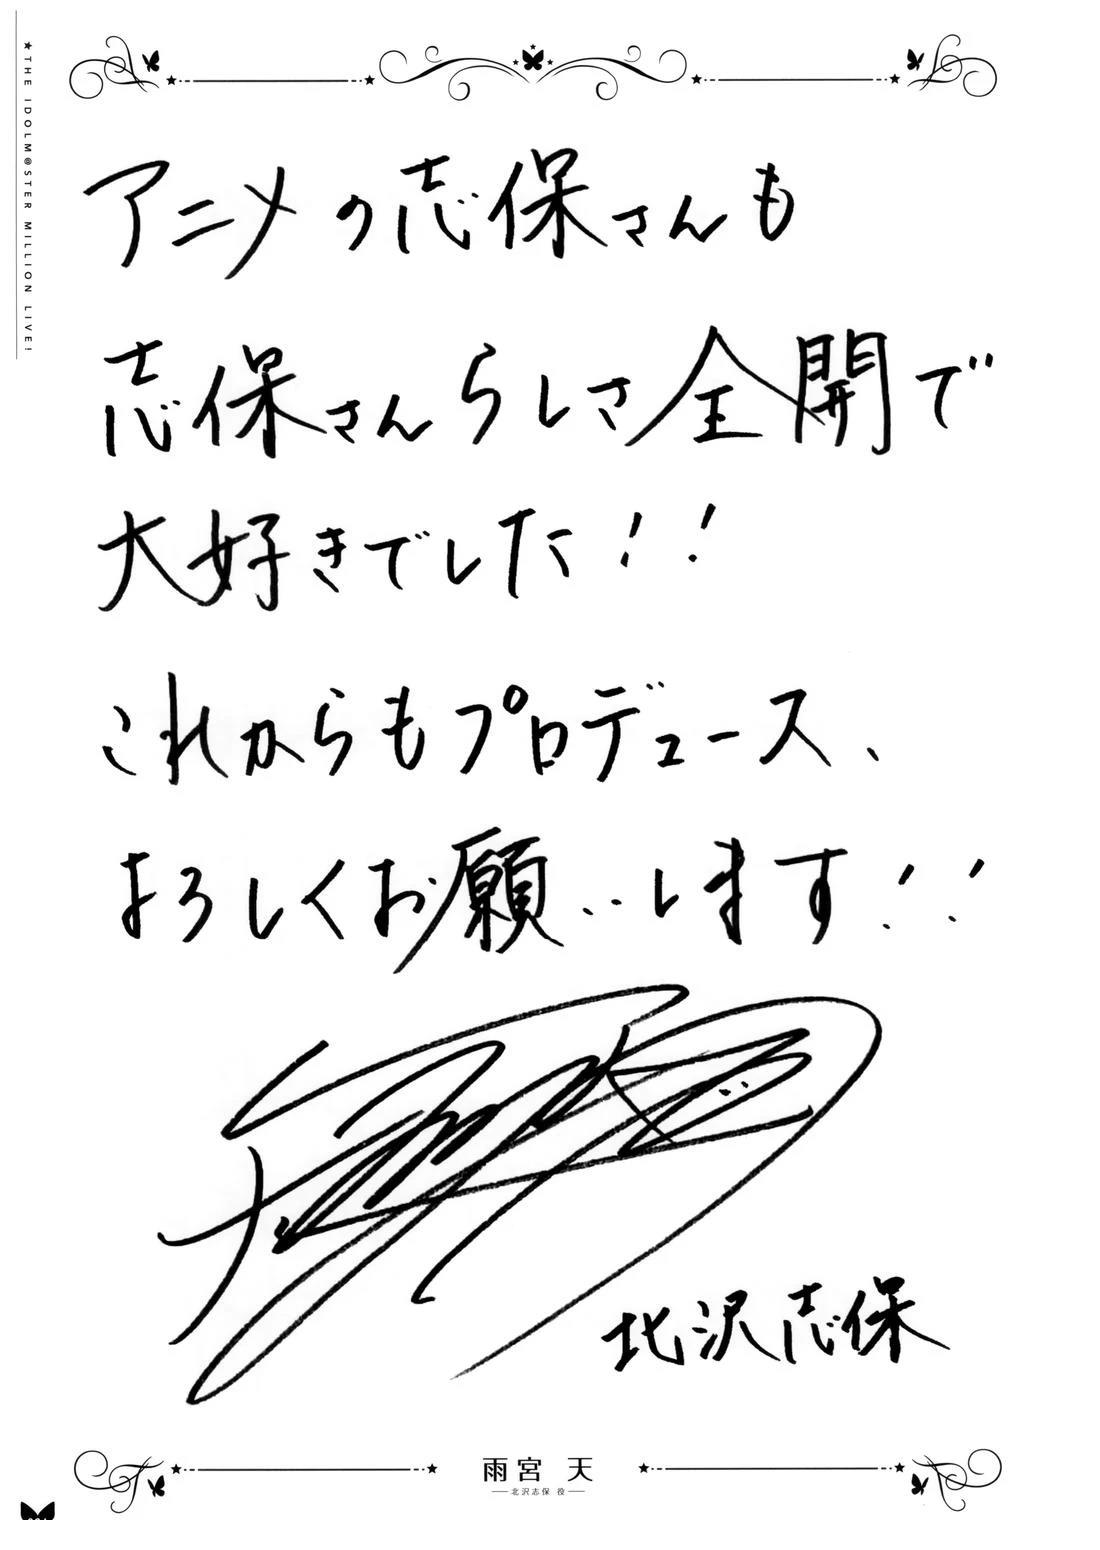 ★THE IDOLM@STER MILLION LIVE!
アニメの志保さんも
志保さんらしさ全開で
大好きでした!!
これからもプロデュース、
よろしくお願いします!!
北沢志保
雨宮 天
北沢志保 役